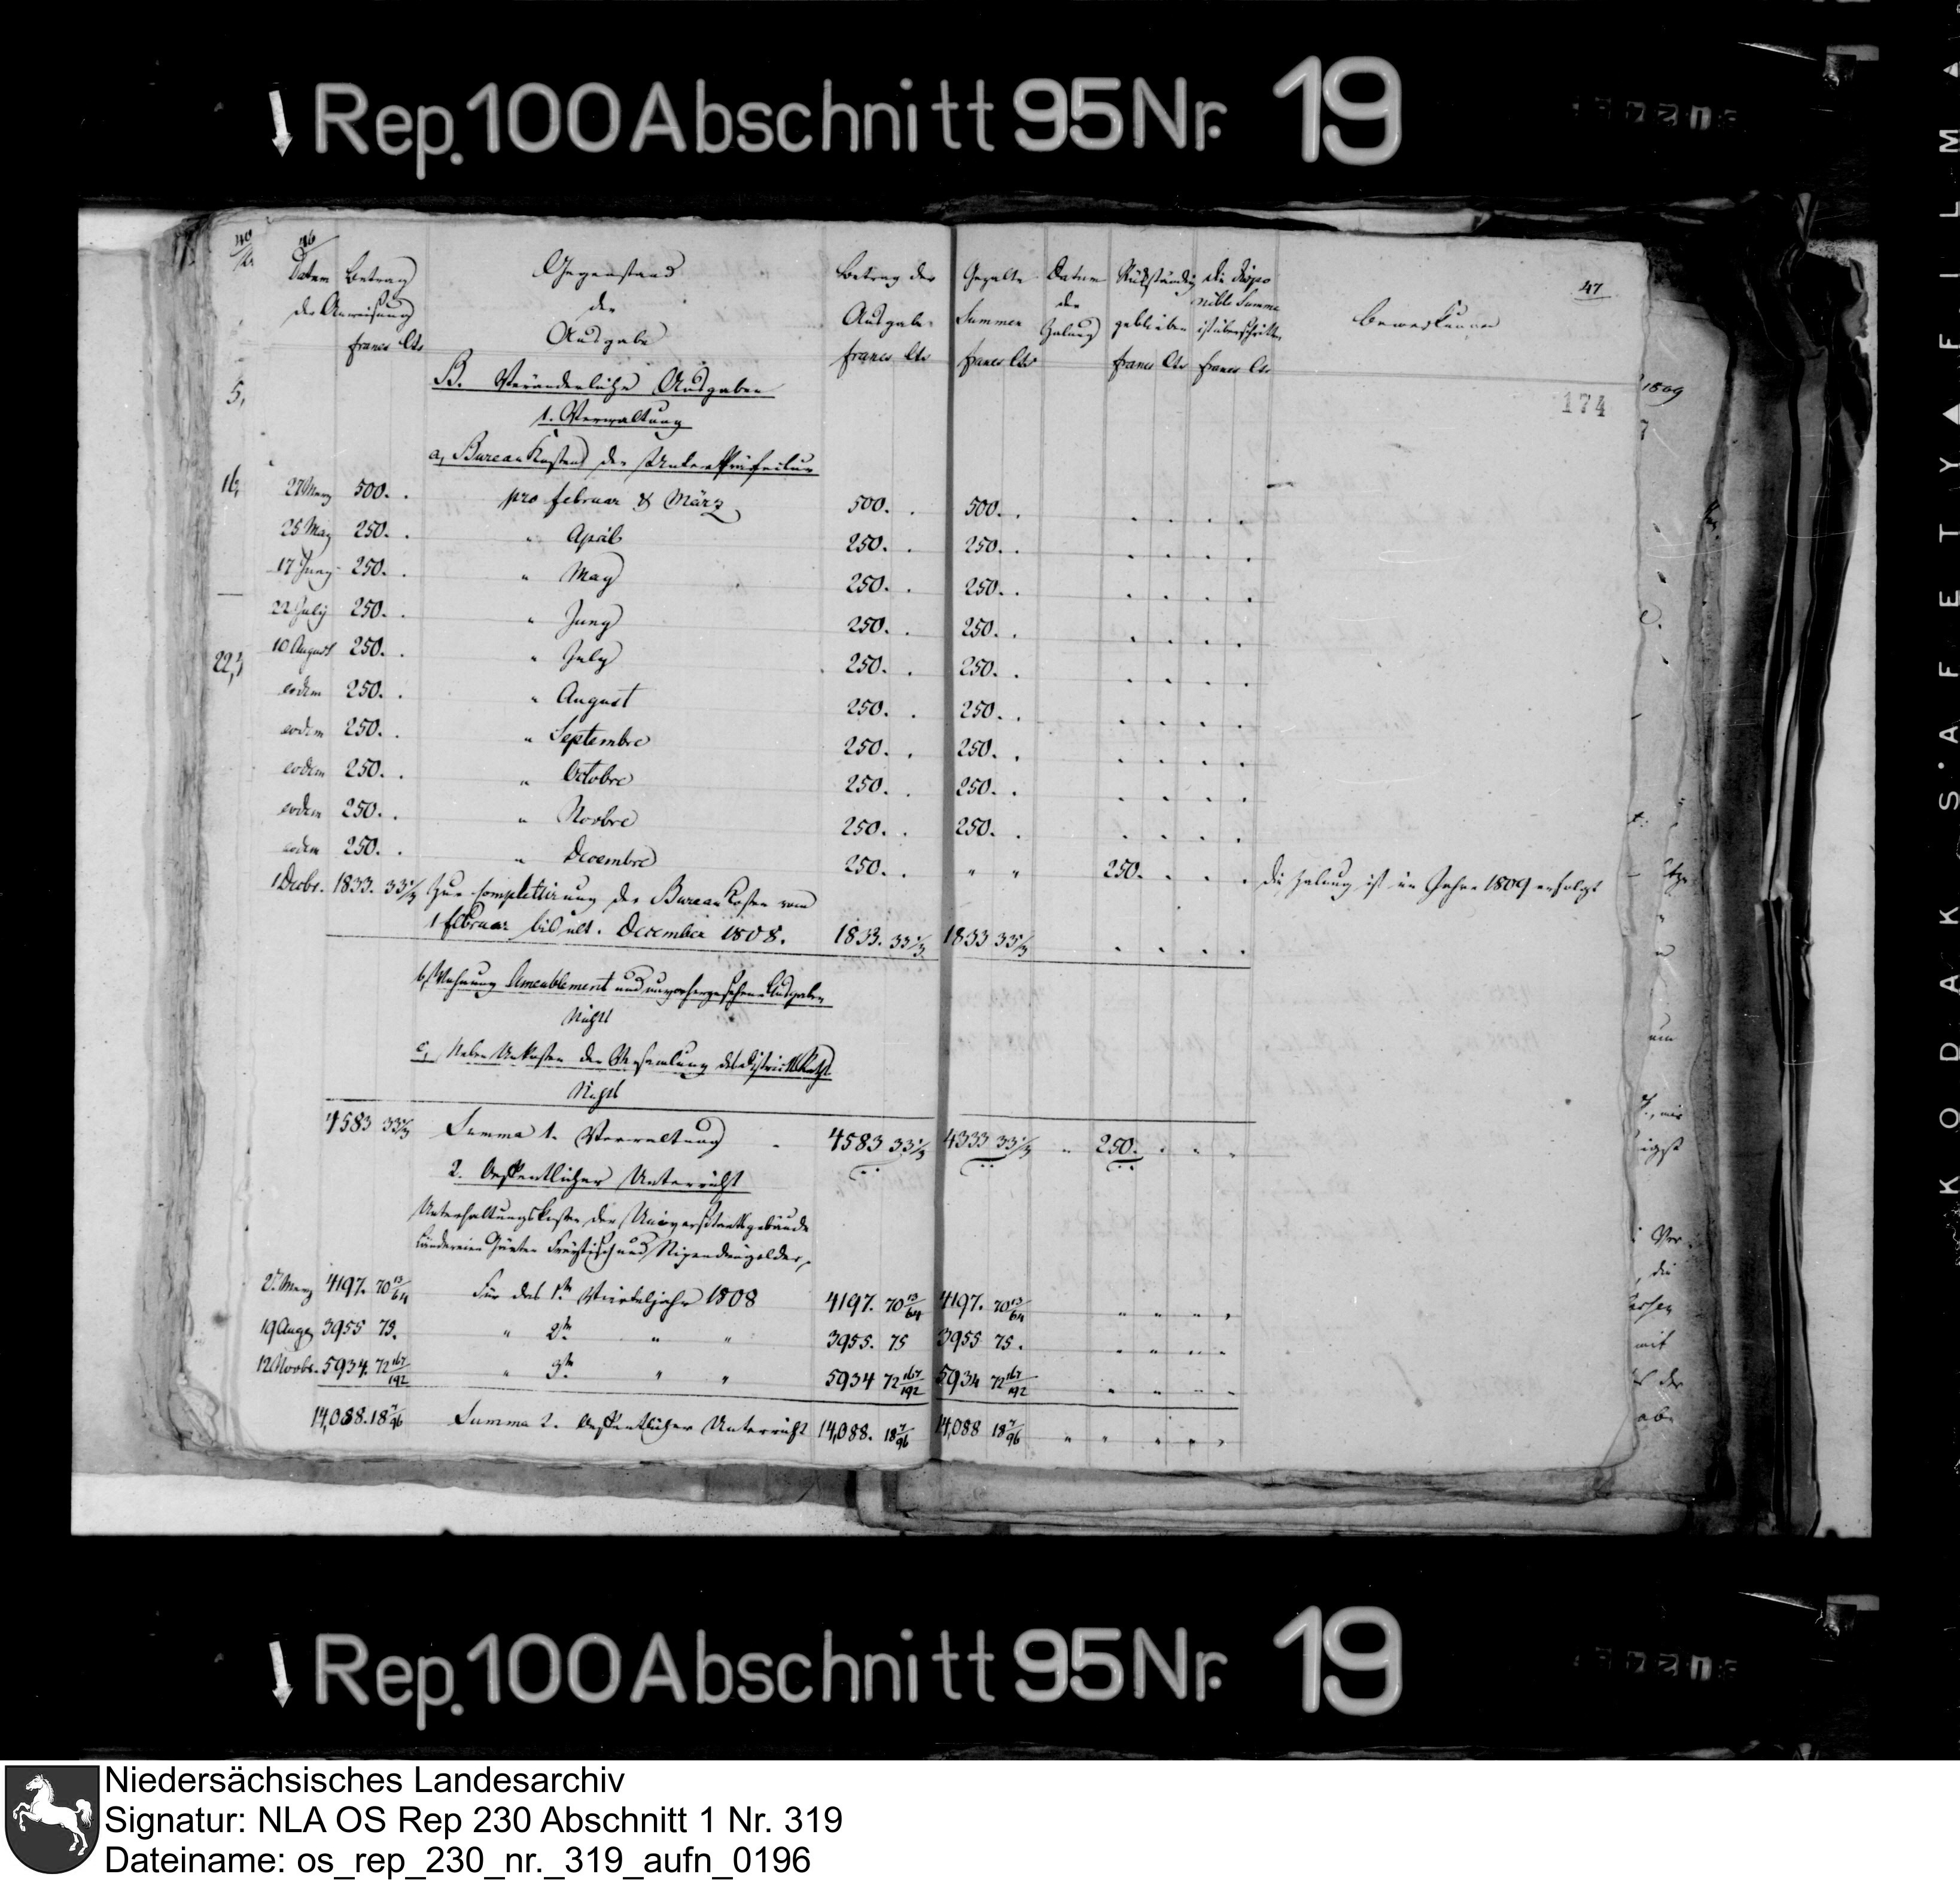 Rep. 100 Abschnitt 95 Nr. 19
46
47
Datum Betrag Gegenstand Betrag der Gezalte Datum Rükständig die dispo
der Anweisung der Ausgabe Summen der geblieben nible Summe Bemerkungen
Ausgabe Zalung ist überschritten
francs Cts francs Cts francs Cts francs Cts francs Cts
174
1809
5,
16,
B. Veränderliche Ausgaben
1. Verwaltung
a, Bureau Kosten der Unterpräfectur
27 Merz 500. . pro februar & März 500. . 500. . . . . .
25 May 250. . " April 250. . 250. . . . . .
17 Juny 250. . " May 250. . 250. . . . . .
22 July 250. . " Juny 250. . 250. . . . . .
10 August 250. . " July 250. . 250. . . . . .
eodem 250. . " August 250. . 250. . . . . .
eodem 250. . " Septembre 250. . 250. . . . . .
eodem 250. . " Octobre 250. . 250. . . . . .
eodem 250. . " Novbre 250. . 250. . . . . .
eodem 250. . " Decembre 250. . " " 250. . . . die Zalung ist im Jahre 1809 erfolgt
1 Decbr. 1833. 33 1/3 Zur Completirung der Bureau Kosten vom
1 februar bis ult. December 1808. 1833. 33 1/3 1833 33 1/3 . . . .
b, Wohnung Ameublement und unvorhergesehene Ausgaben
Nichts
c, Neben Unkosten der Versamlung des Districts Raths
Nichts
4583 33 1/3 Summa 1. Verwaltung 4583 33 1/3 4333 33 1/3 " 250. . " "
2. Oeffentlicher Unterricht
Unterhaltungskosten der Universitaetsgebäude
Ländereien Gärten Freytisch und Stipendiengelder,
2. Merz 4197. 70 13/64 Für das 1te Vierteljahr 1808 4197. 70 13/64 4197. 70 13/64 " " " "
19 Aug. 3955 75. " 2te " " 3955. 75 3955 75. " " " "
12 Novbr. 5934. 72 167/192 " 3te " " 5934 72 167/192 5934 72 167/192 " " " "
14,088. 18 7/96 Summa 2. Oeffentlicher Unterricht 14,088. 18 7/96 14,088 18 7/96 " " " " "
Rep. 100 Abschnitt 95 Nr. 19
KODAK SAFETY FILM
Niedersächsisches Landesarchiv
Signatur: NLA OS Rep 230 Abschnitt 1 Nr. 319
Dateiname: os_rep_230_nr._319_aufn_0196